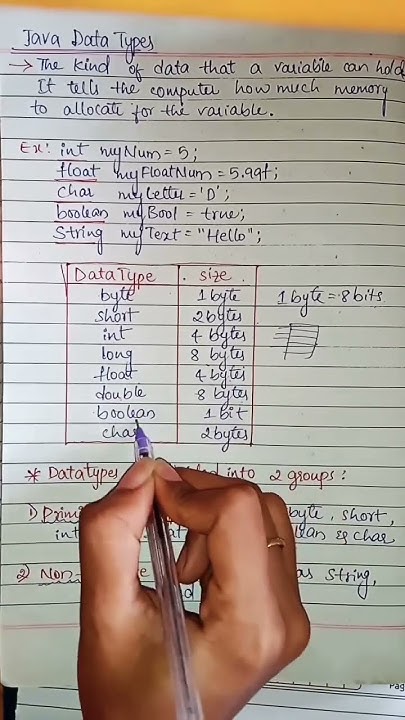 Java Data Types
→ The kind of data that a variable can hold
It tells the computer how much memory
to allocate for the variable.
Ex: int myNum = 5;
float myFloatNum = 5.99f;
char myLetter = 'D';
boolean myBool = true;
String myText = "Hello";
DataType size
byte 1 byte 1 byte = 8 bits
short 2 bytes
int 4 bytes
long 8 bytes
float 4 bytes
double 8 bytes
boolean 1 bit
char 2 bytes
* Datatypes into 2 groups:
1) byte, short,
int char
2) as String,